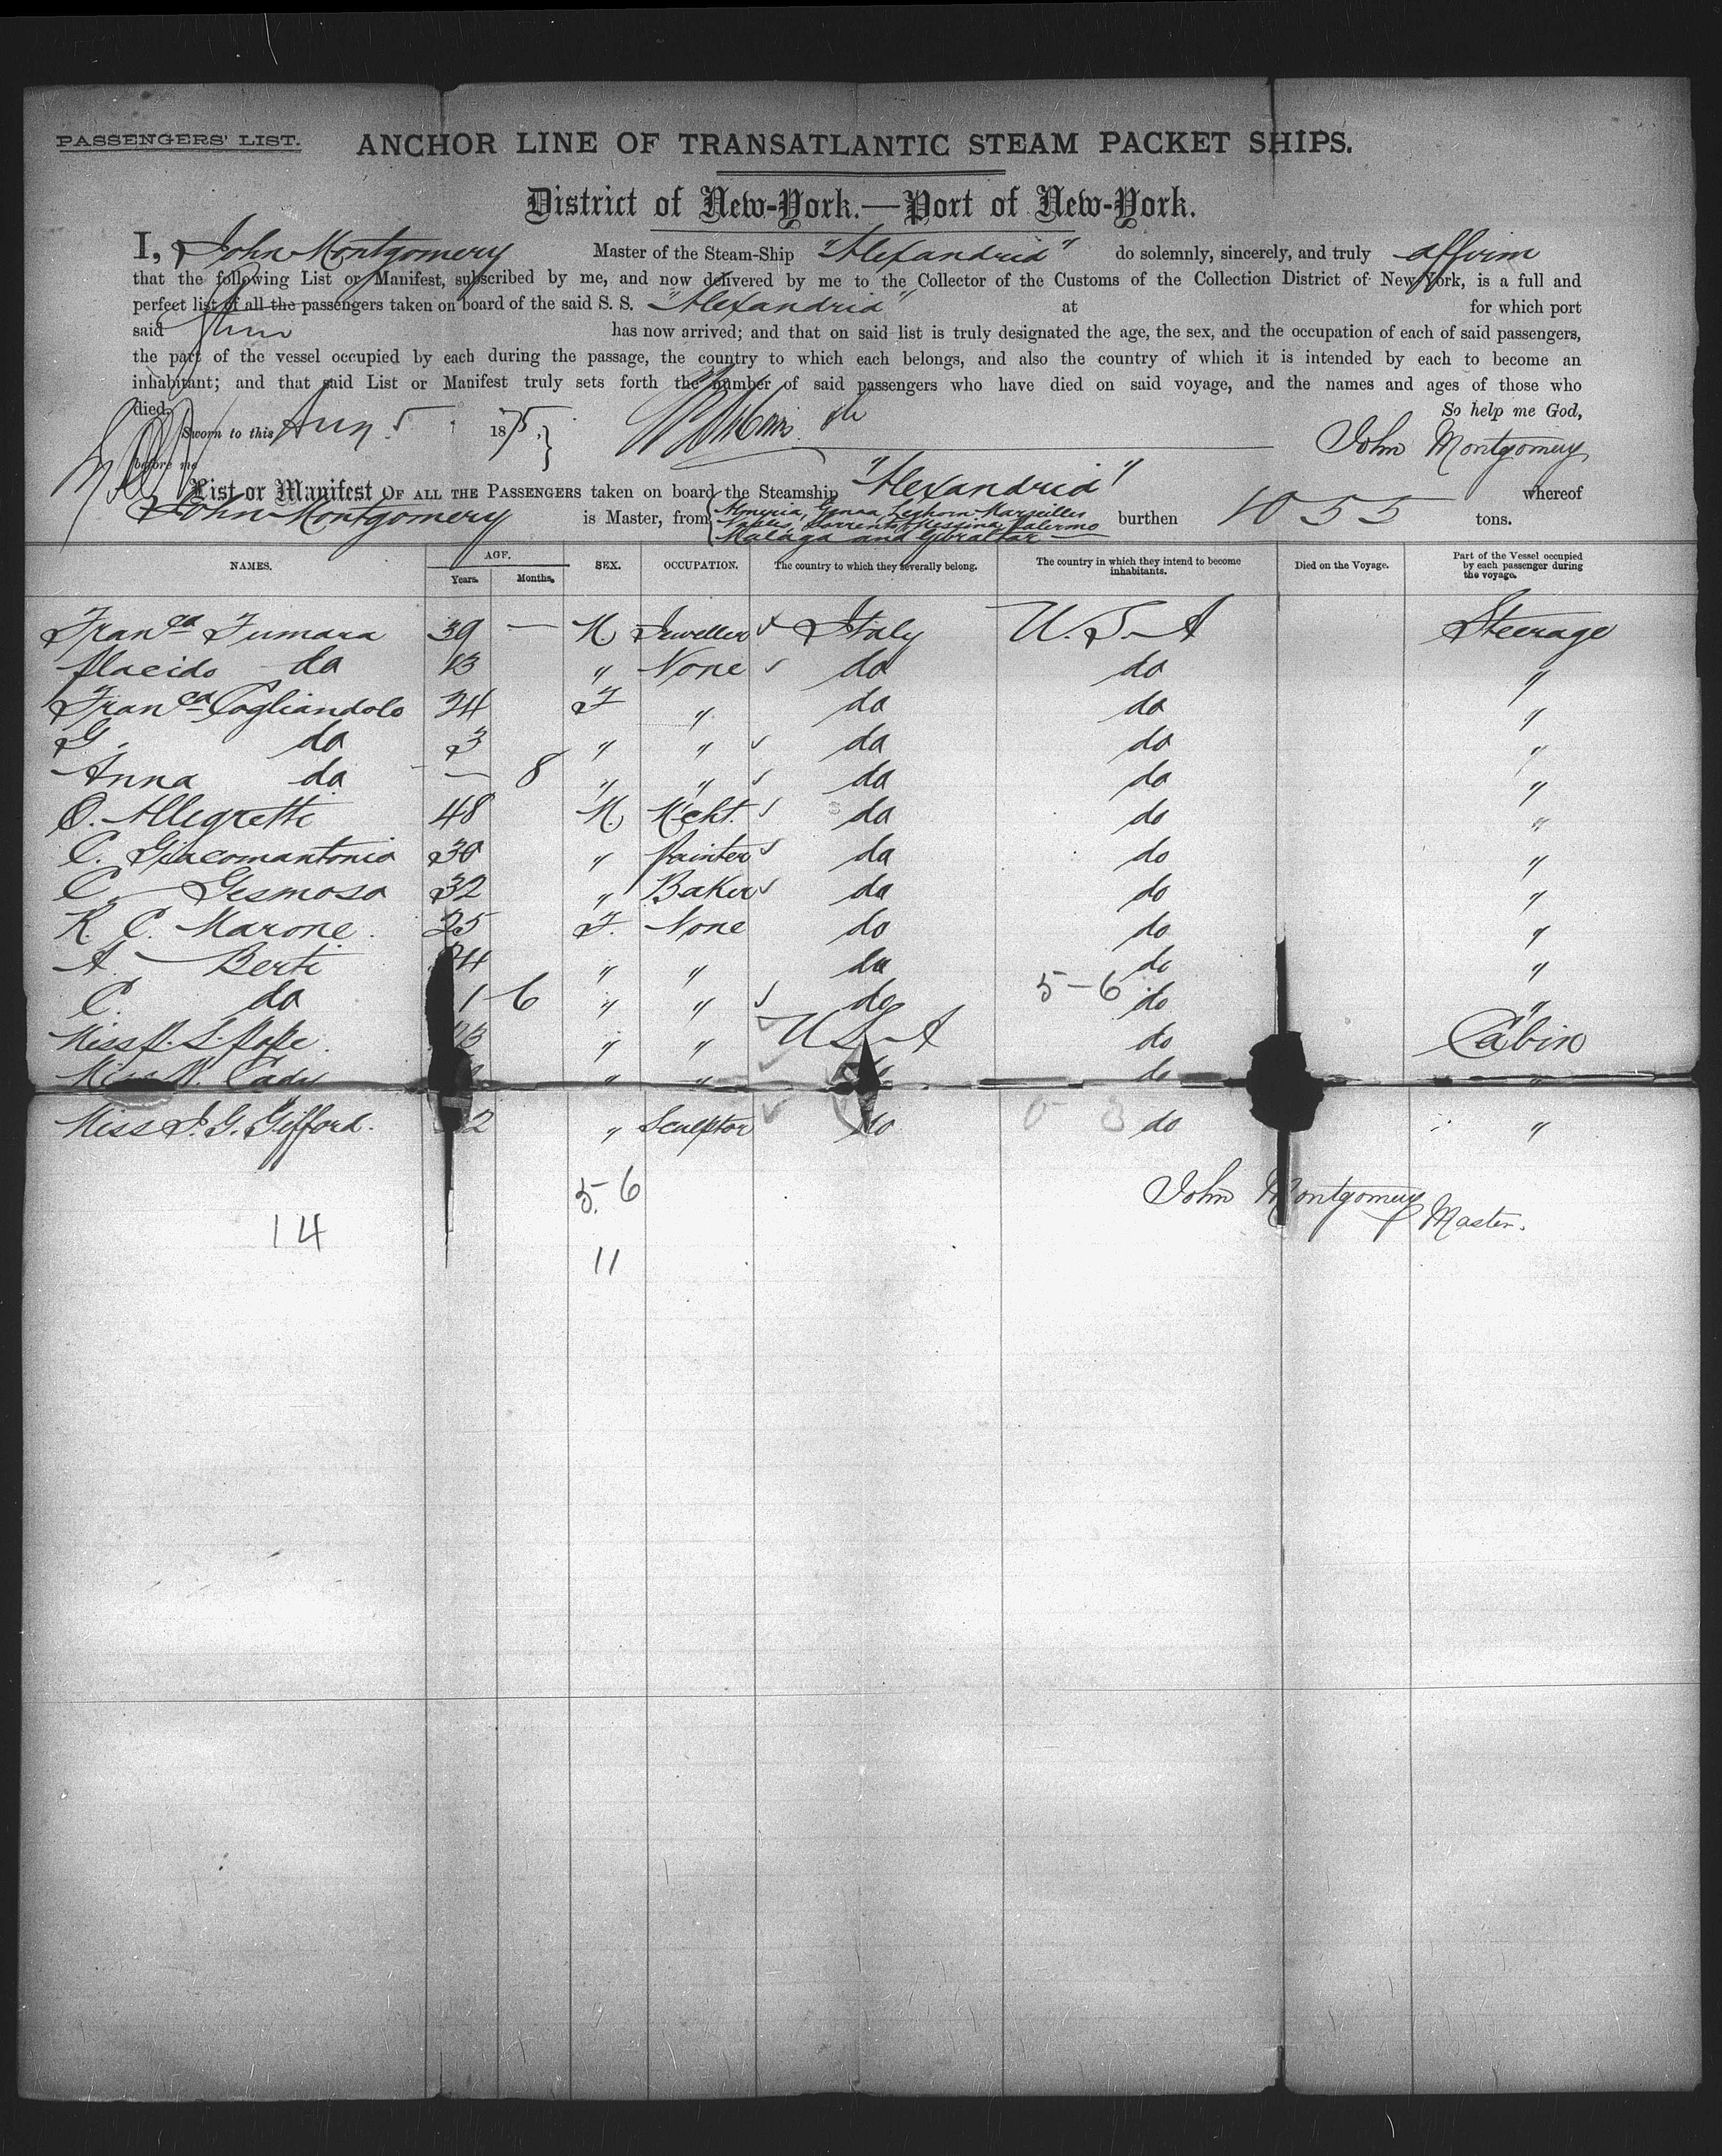 PASSENGERS' LIST. ANCHOR LINE OF TRANSATLANTIC STEAM PACKET SHIPS.
District of New-York.—Port of New-York.
I, John Montgomery Master of the Steam-Ship "Alexandria" do solemnly, sincerely, and truly affirm
that the following List or Manifest, subscribed by me, and now delivered by me to the Collector of the Customs of the Collection District of New York, is a full and
perfect list of all the passengers taken on board of the said S. S. "Alexandria" at for which port
said has now arrived; and that on said list is truly designated the age, the sex, and the occupation of each of said passengers,
the part of the vessel occupied by each during the passage, the country to which each belongs, and also the country of which it is intended by each to become an
inhabitant; and that said List or Manifest truly sets forth the number of said passengers who have died on said voyage, and the names and ages of those who
died. So help me God,
Sworn to this Aug. 5 1875. John Montgomery
before me
List or Manifest OF ALL THE PASSENGERS taken on board the Steamship "Alexandria" whereof
John Montgomery is Master, from Almeria, Genoa, Leghorn Marseilles
Naples, Sorrento, Messina, Palermo burthen 1055 tons.
Malaga and Gibraltar
NAMES. AGE. Years. Months. SEX. OCCUPATION. The country to which they severally belong. The country in which they intend to become inhabitants. Died on the Voyage. Part of the Vessel occupied by each passenger during the voyage.
Franca Fumara 39 — M Jweller Italy U.S.A Steerage
Placido do 13 " None do do "
Franca Cogliandolo 34 F " do do "
G. do 3 " " do do "
Anna do — 8 " " do do "
O. Allegretti 48 M. Mcht. do do "
C. Giacomantonio 30 " Painter do do "
C. Gesmoso 32 " Baker do do "
R. C. Marone. 25 F. None do do "
A. Berti 24 " " do do "
C. do 1 6 " " do 5-6 do "
Miss P. S. Pope. " " U.S.A do Cabin
Miss Cady " " do "
Miss J. G. Gifford. 2 " Sculptor do do "
5. 6 John Montgomery
14 Master.
11